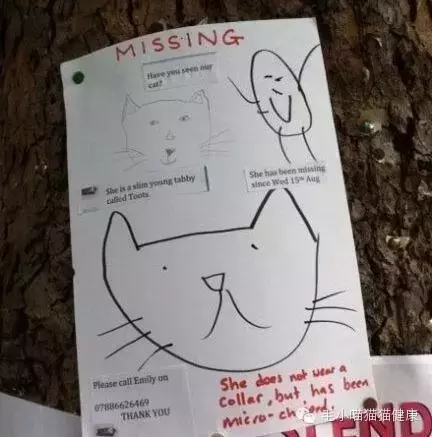 MISSING
Have you seen our
cat?
She is a slim young tabby
called Toots.
She has been missing
since Wed 15th Aug
Please call Emily on
07886626469
THANK YOU
She does not wear a
collar, but has been
micro-chipped.
主小喵猫猫健康
END